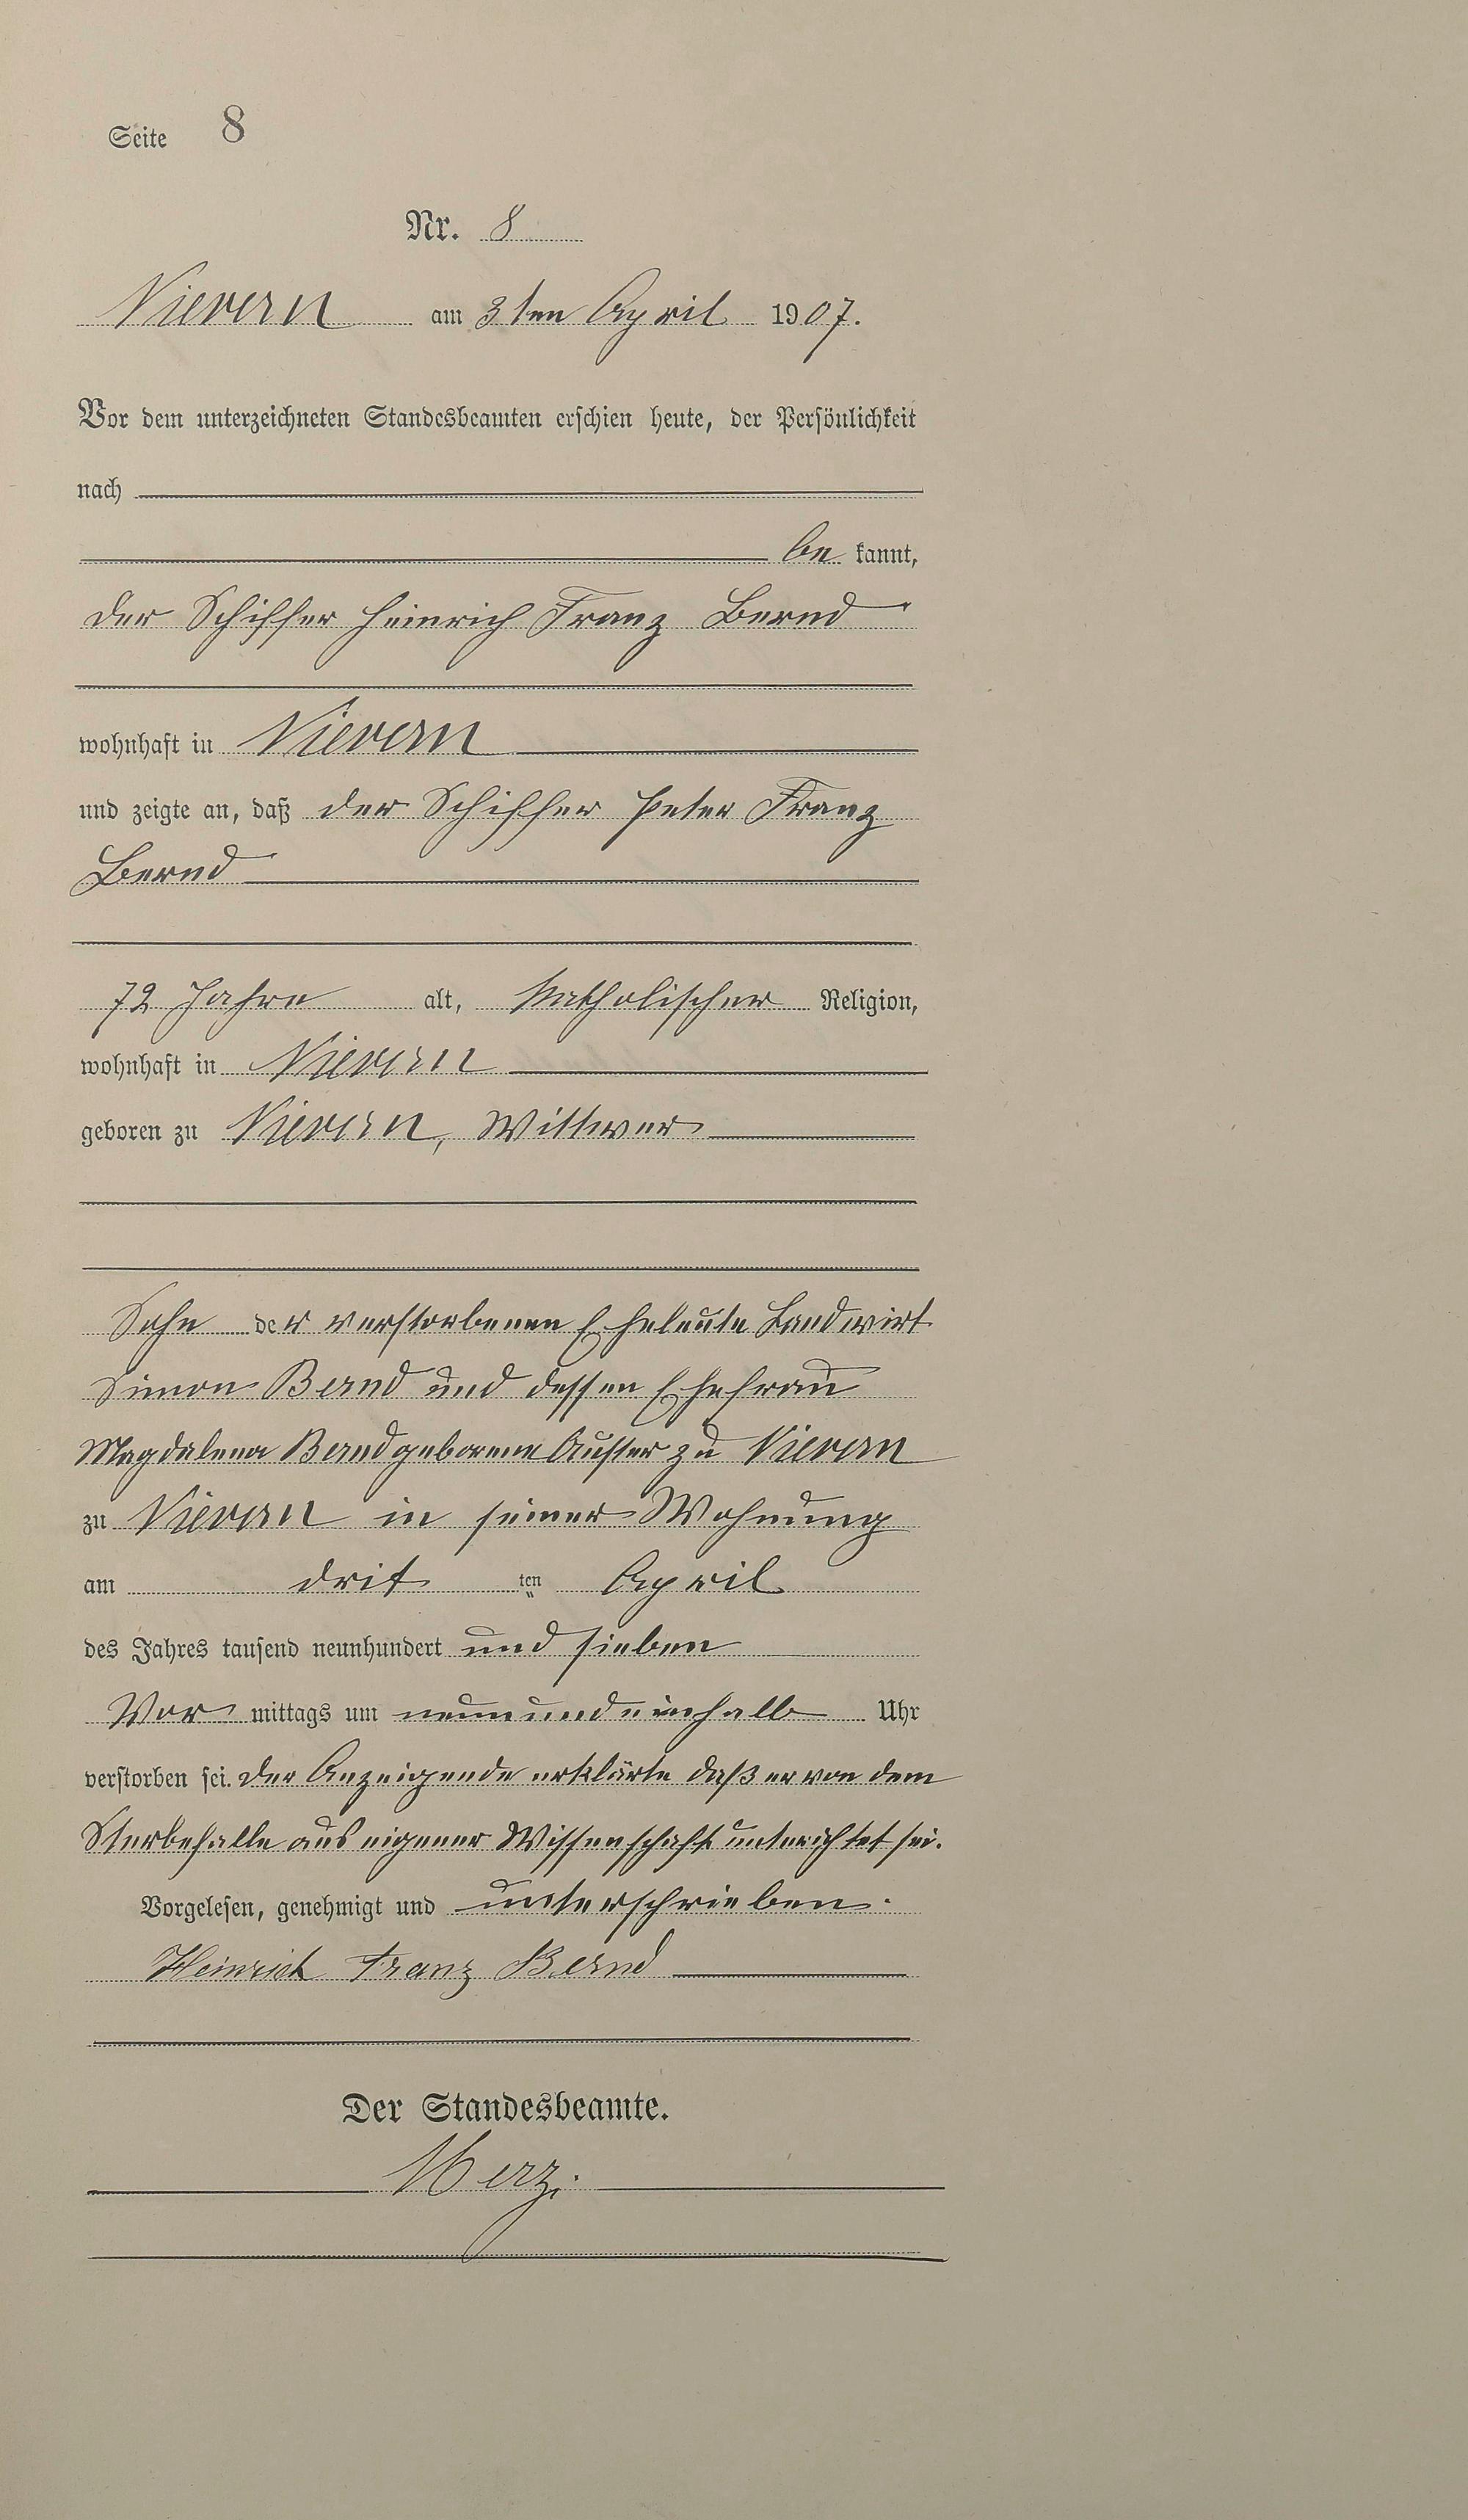 Seite 8
Nr. 8
Nievern am 3ten April 1907.
Vor dem unterzeichneten Standesbeamten erschien heute, der Persönlichkeit
nach
be kannt,
der Schiffer Heinrich Franz Bernd
wohnhaft in Nievern
und zeigte an, daß der Schiffer Peter Franz
Bernd
72 Jahre alt, katholischer Religion,
wohnhaft in Nievern
geboren zu Nievern, Wittwer
Sohn der verstorbenen Eheleute Landwirt
Simon Bernd und dessen Ehefrau
Magdalena Bernd geborene zu Nievern
zu Nievern in seiner Wohnung
am drit ten April
des Jahres tausend neunhundert und sieben
Vor mittags um neunundeinhalb Uhr
verstorben sei. Der Anzeigende erklärte daß er von dem
Sterbefalle aus eigener Wissenschaft unterichtet sei.
Vorgelesen, genehmigt und unterschrieben.
Heinrich Franz Bernd
Der Standesbeamte.
Merz.